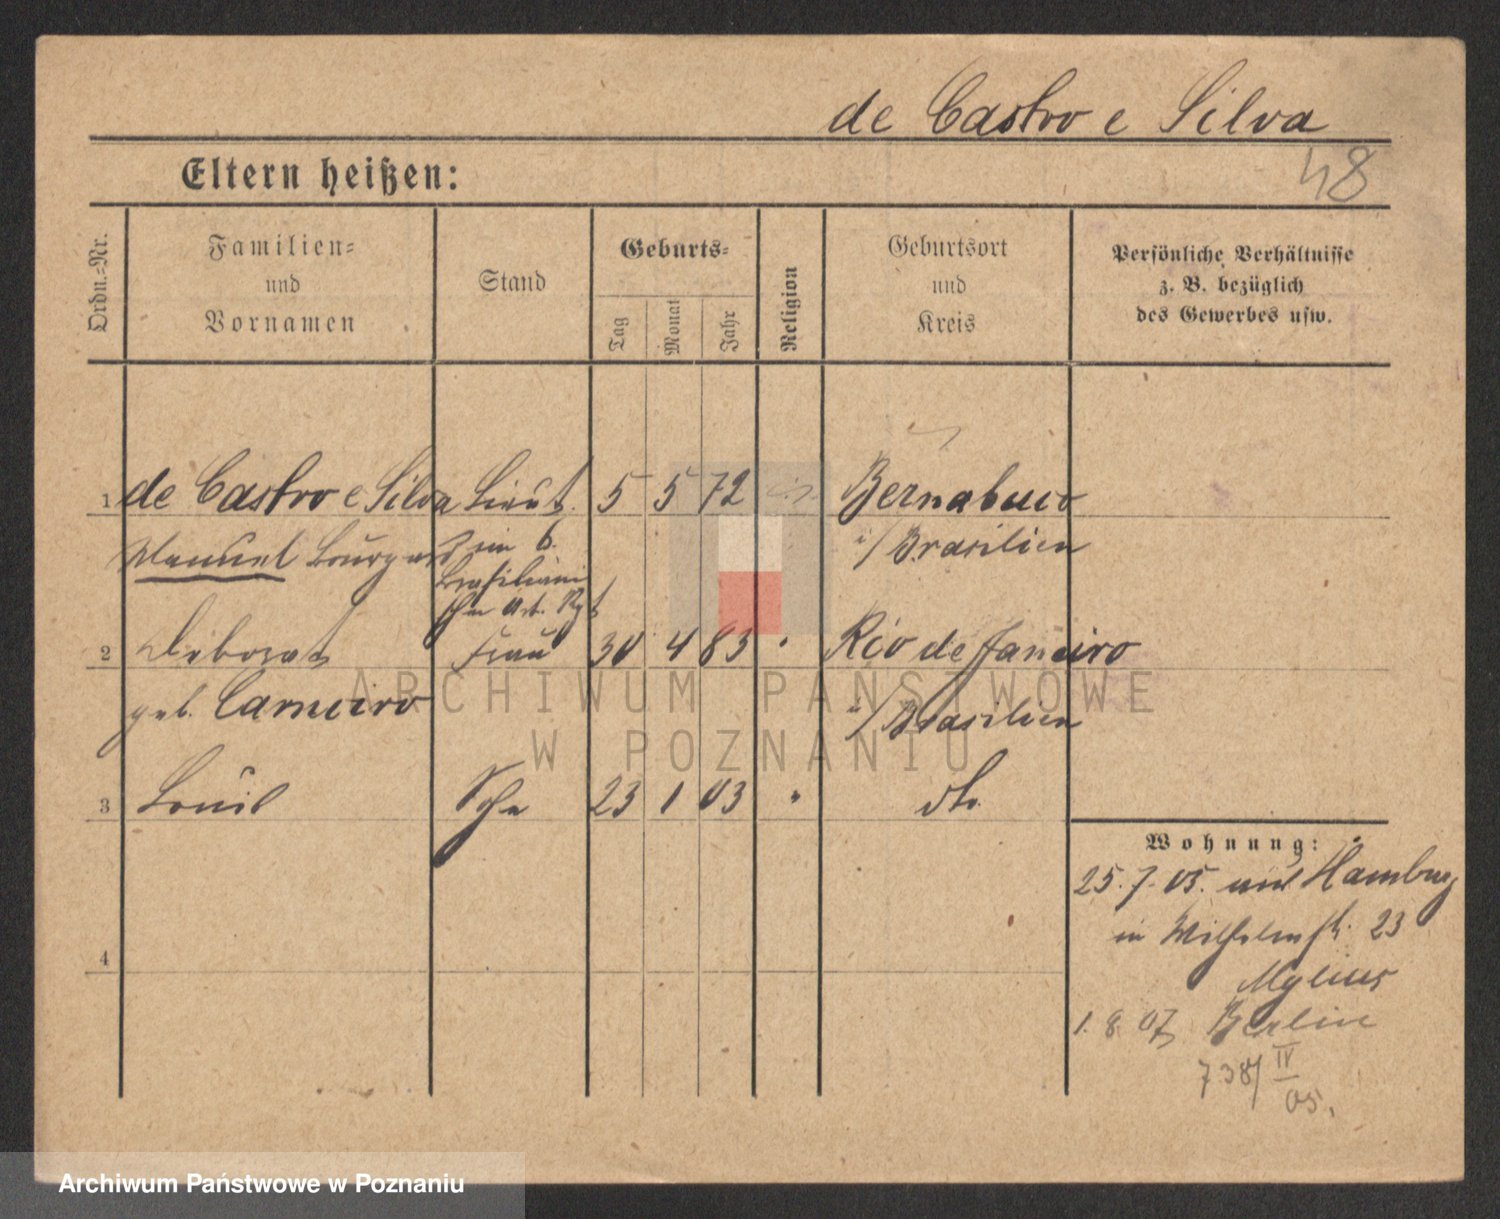 de Castro e Silva
48
Eltern heißen:
Ordn.-Nr.
Familien-
und
Vornamen
Stand
Geburts-
Tag
Monat
Jahr
Religion
Geburtsort
und
Kreis
Persönliche Verhältnisse
z. B. bezüglich
des Gewerbes usw.
1 de Castro e Silva Lieut. 5 5 72 Bernabuco
Manuel im 6. i/Brasilien
Brasiliani
schen Art. Rgt
2 Frau 30 4 83 " Rio de Janeiro
geb. Carneiro i/Brasilien
3 Louis Sohn 23 1 03 " dto.
4
Wohnung:
25.7.05. aus Hamburg
in Wilhelmstr. 23
Mylius
1.8.07 Berlin
738/IV
05.
ARCHIWUM PAŃSTWOWE
W POZNANIU
Archiwum Państwowe w Poznaniu